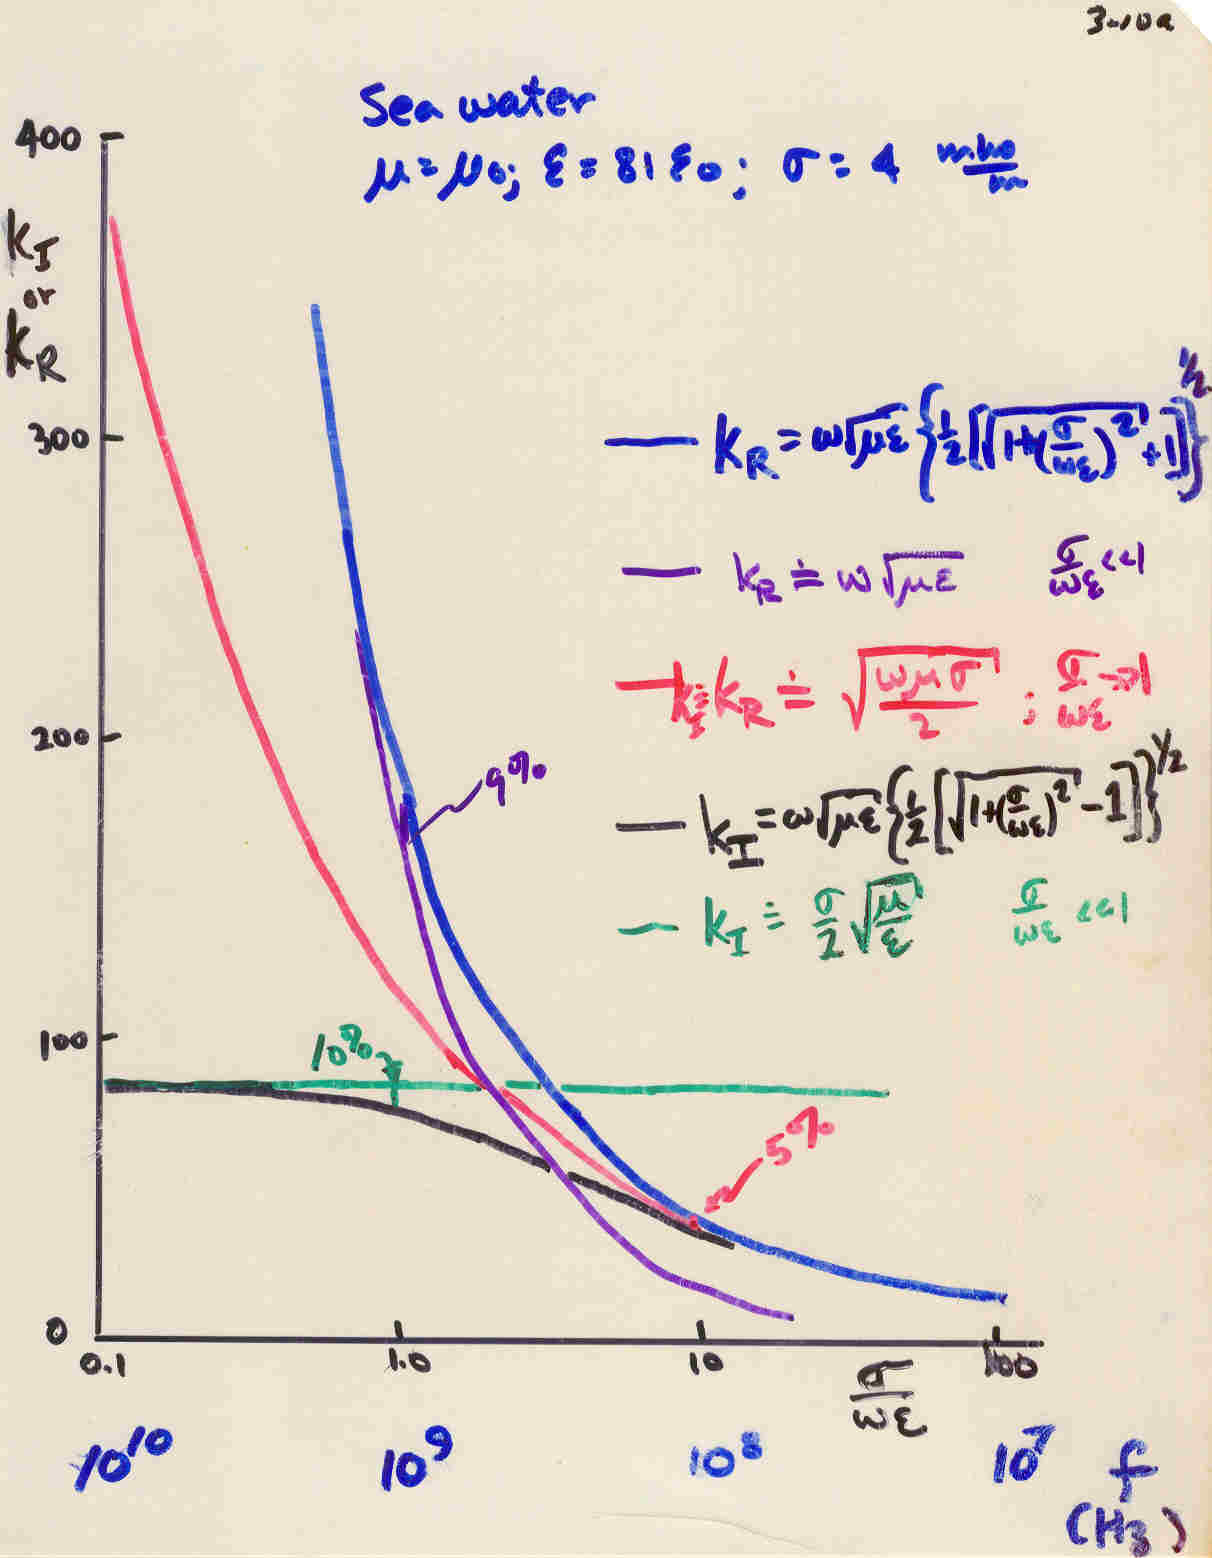 3-10a
Sea water
μ=μ₀; ε=81ε₀; σ=4 mho/m
400
k_I
or
k_R
300
200
100
0
k_R = ω√(με) {1/2[√(1+(σ/ωε)²)+1]}^1/2
k_R ≐ ω√(με)   σ/ωε <<1
k_I ≐ k_R ≐ √(ωμσ/2) ; σ/ωε >>1
k_I = ω√(με) {1/2[√(1+(σ/ωε)²)-1]}^1/2
k_I ≐ σ/2 √(μ/ε)   σ/ωε <<1
9%
10%
5%
0.1 1.0 10 100
σ/ωε
10¹⁰ 10⁹ 10⁸ 10⁷ f
(Hz)